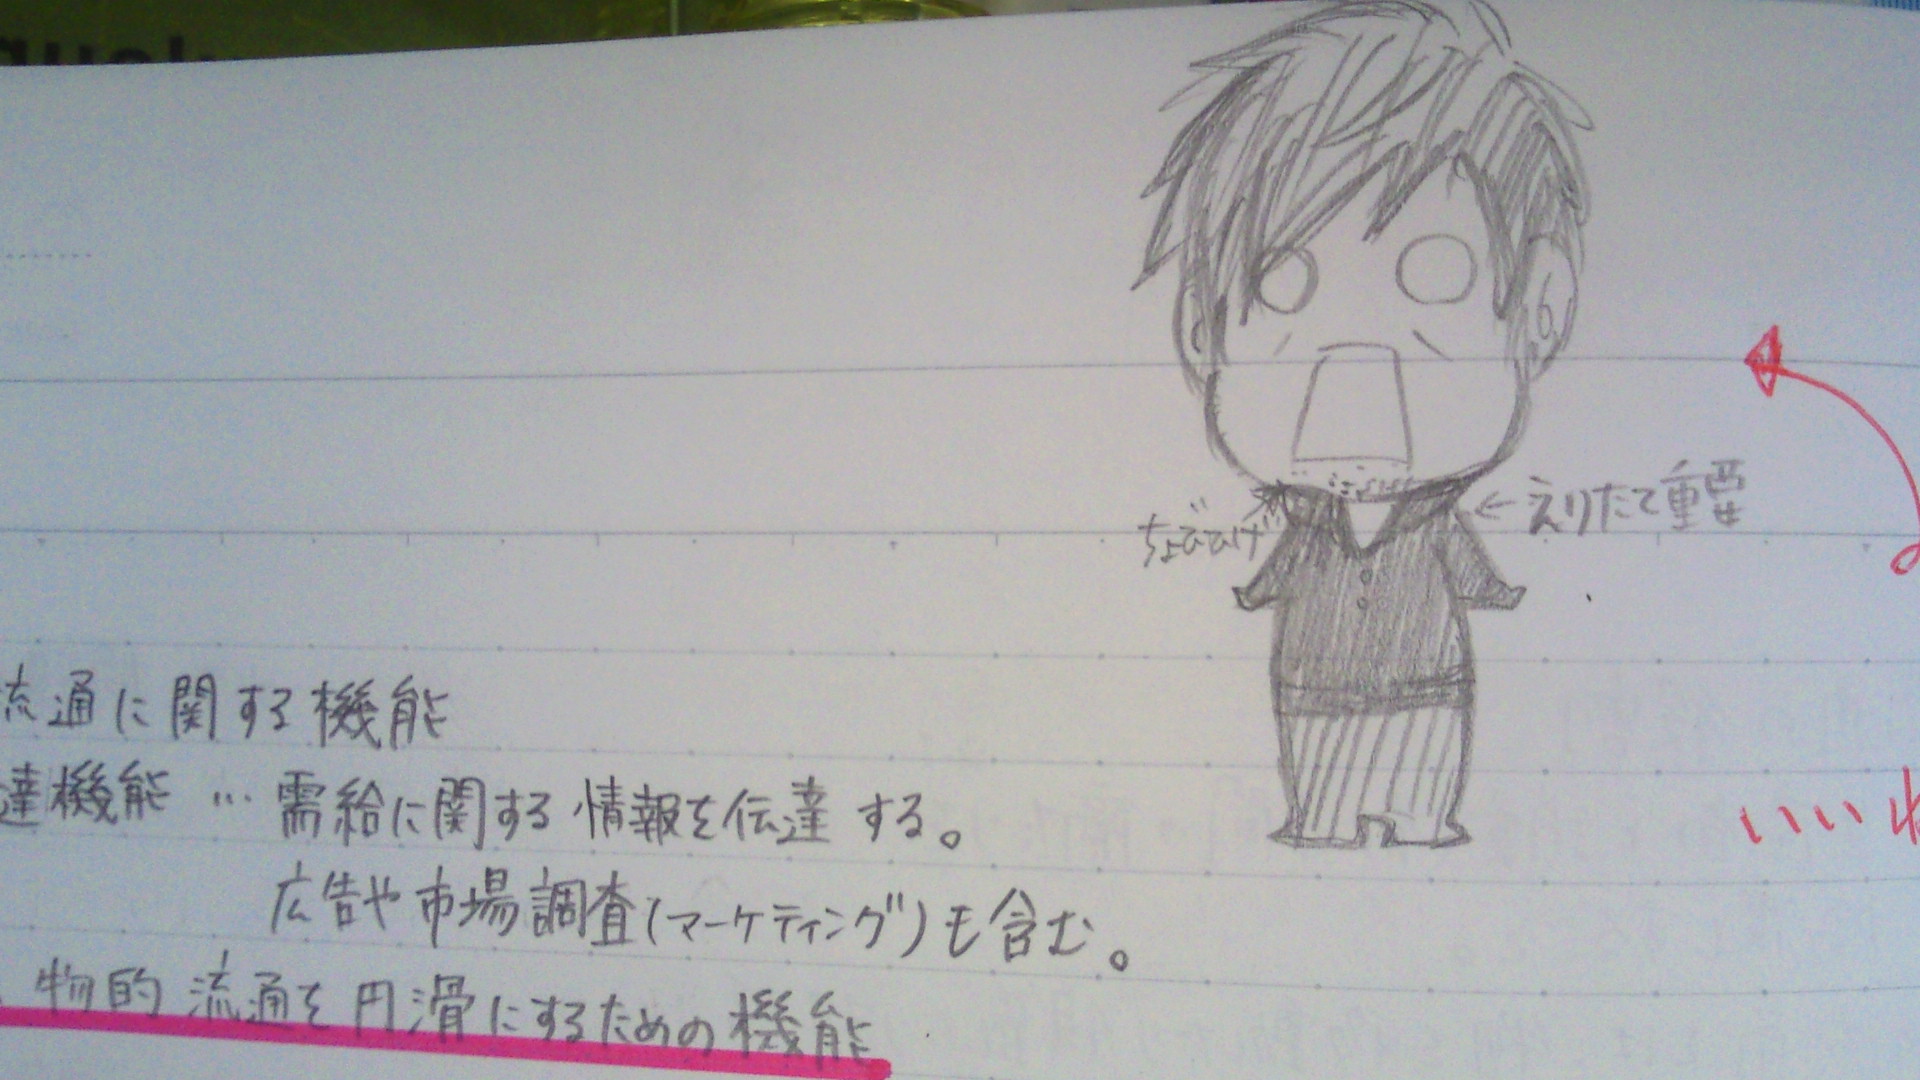 ←えりたて重要
ちょびひげ
流通に関する機能
達機能 … 需給に関する情報を伝達する。
いいね
広告や市場調査(マーケティング)も含む。
物的流通を円滑にするための機能